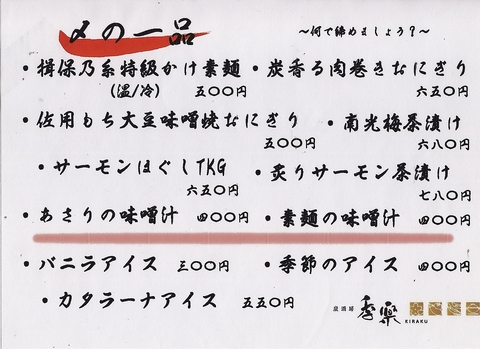 〆の一品 ～何で締めましょう？～
・揖保乃糸特級かけ素麺 ・炭香る肉巻きおにぎり
(温/冷) 五〇〇円 六五〇円
・佐用もち大豆味噌焼おにぎり ・南光梅茶漬け
五〇〇円 六八〇円
・サーモンほぐしTKG ・炙りサーモン茶漬け
六五〇円 七八〇円
・あさりの味噌汁 四〇〇円 ・素麺の味噌汁 四〇〇円
・バニラアイス 三〇〇円 ・季節のアイス 四〇〇円
・カタラーナアイス 五五〇円
居酒屋 季楽 KIRAKU